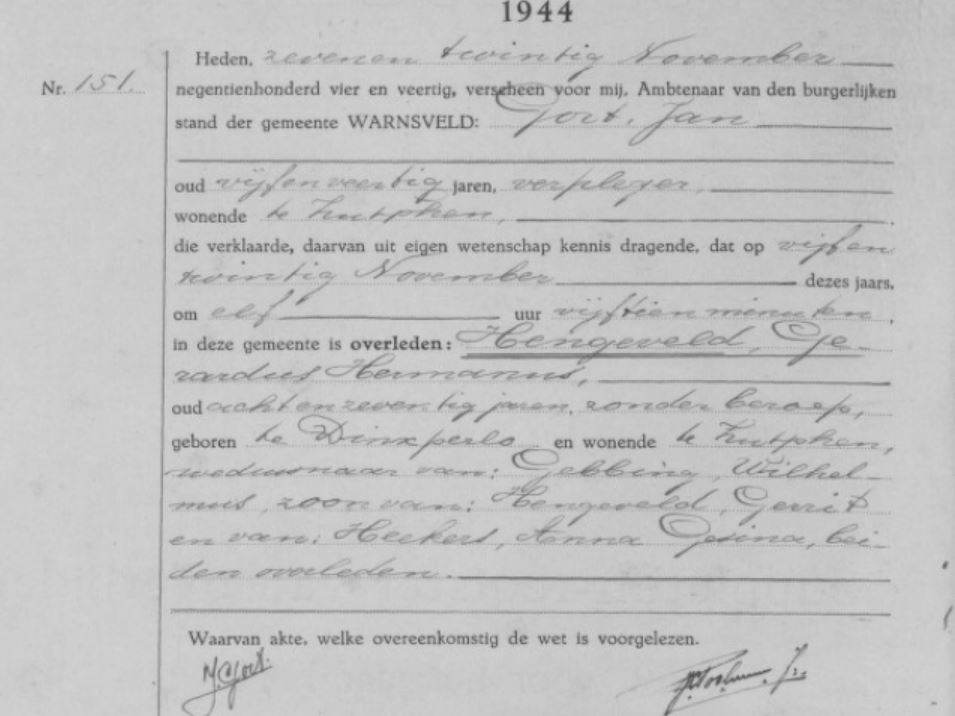 1944
Heden, zevenen twintig November
Nr. 151. negentienhonderd vier en veertig, verscheen voor mij, Ambtenaar van den burgerlijken
stand der gemeente WARNSVELD: Gort, Jan
oud vijfenveertig jaren, verpleger,
wonende te Zutphen,
die verklaarde, daarvan uit eigen wetenschap kennis dragende, dat op vijfen
twintig November dezes jaars,
om elf uur vijftien minuten,
in deze gemeente is overleden: Hengeveld, Ge-
rardus Hermanus,
oud achtenzeventig jaren, zonder beroep,
geboren te Dinxperlo en wonende te Zutphen,
weduwnaar van: Gebbing, Wilhel-
mus, zoon van: Hengeveld, Gerrit
en van: Heekers, Anna Gesina, bei-
den overleden.
Waarvan akte, welke overeenkomstig de wet is voorgelezen.
JGort.